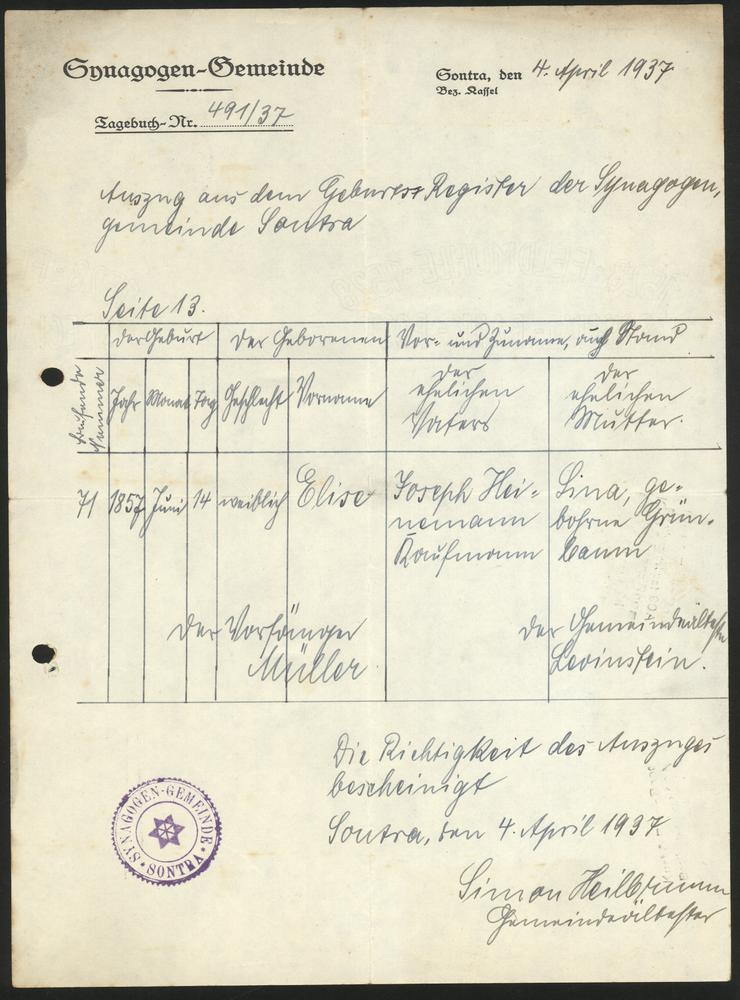 Synagogen-Gemeinde
Sontra, den 4. April 1937
Bez. Kassel
Tagebuch-Nr. 491/37
Auszug aus dem Geburts-Register der Synagogen-
gemeinde Sontra
Seite 13.
Laufende Nummer
der Geburt
Der Geborenen
Vor- und Zuname, auch Stand
Jahr
Monat
Tag
Geschlecht
Vorname
der ehelichen Vaters
der ehelichen Mutter.
71 1857 Juni 14 weiblich Elise Joseph Hei- Lina, ge-
nemann bohrne Grün-
Kaufmann baum
Der Vorsänger der Gemeindeälteste
Müller Levinstein.
Die Richtigkeit des Auszuges
bescheinigt
Sontra, den 4. April 1937
Simon Heilbrunn
Gemeindeältester
SYNAGOGEN-GEMEINDE
SONTRA